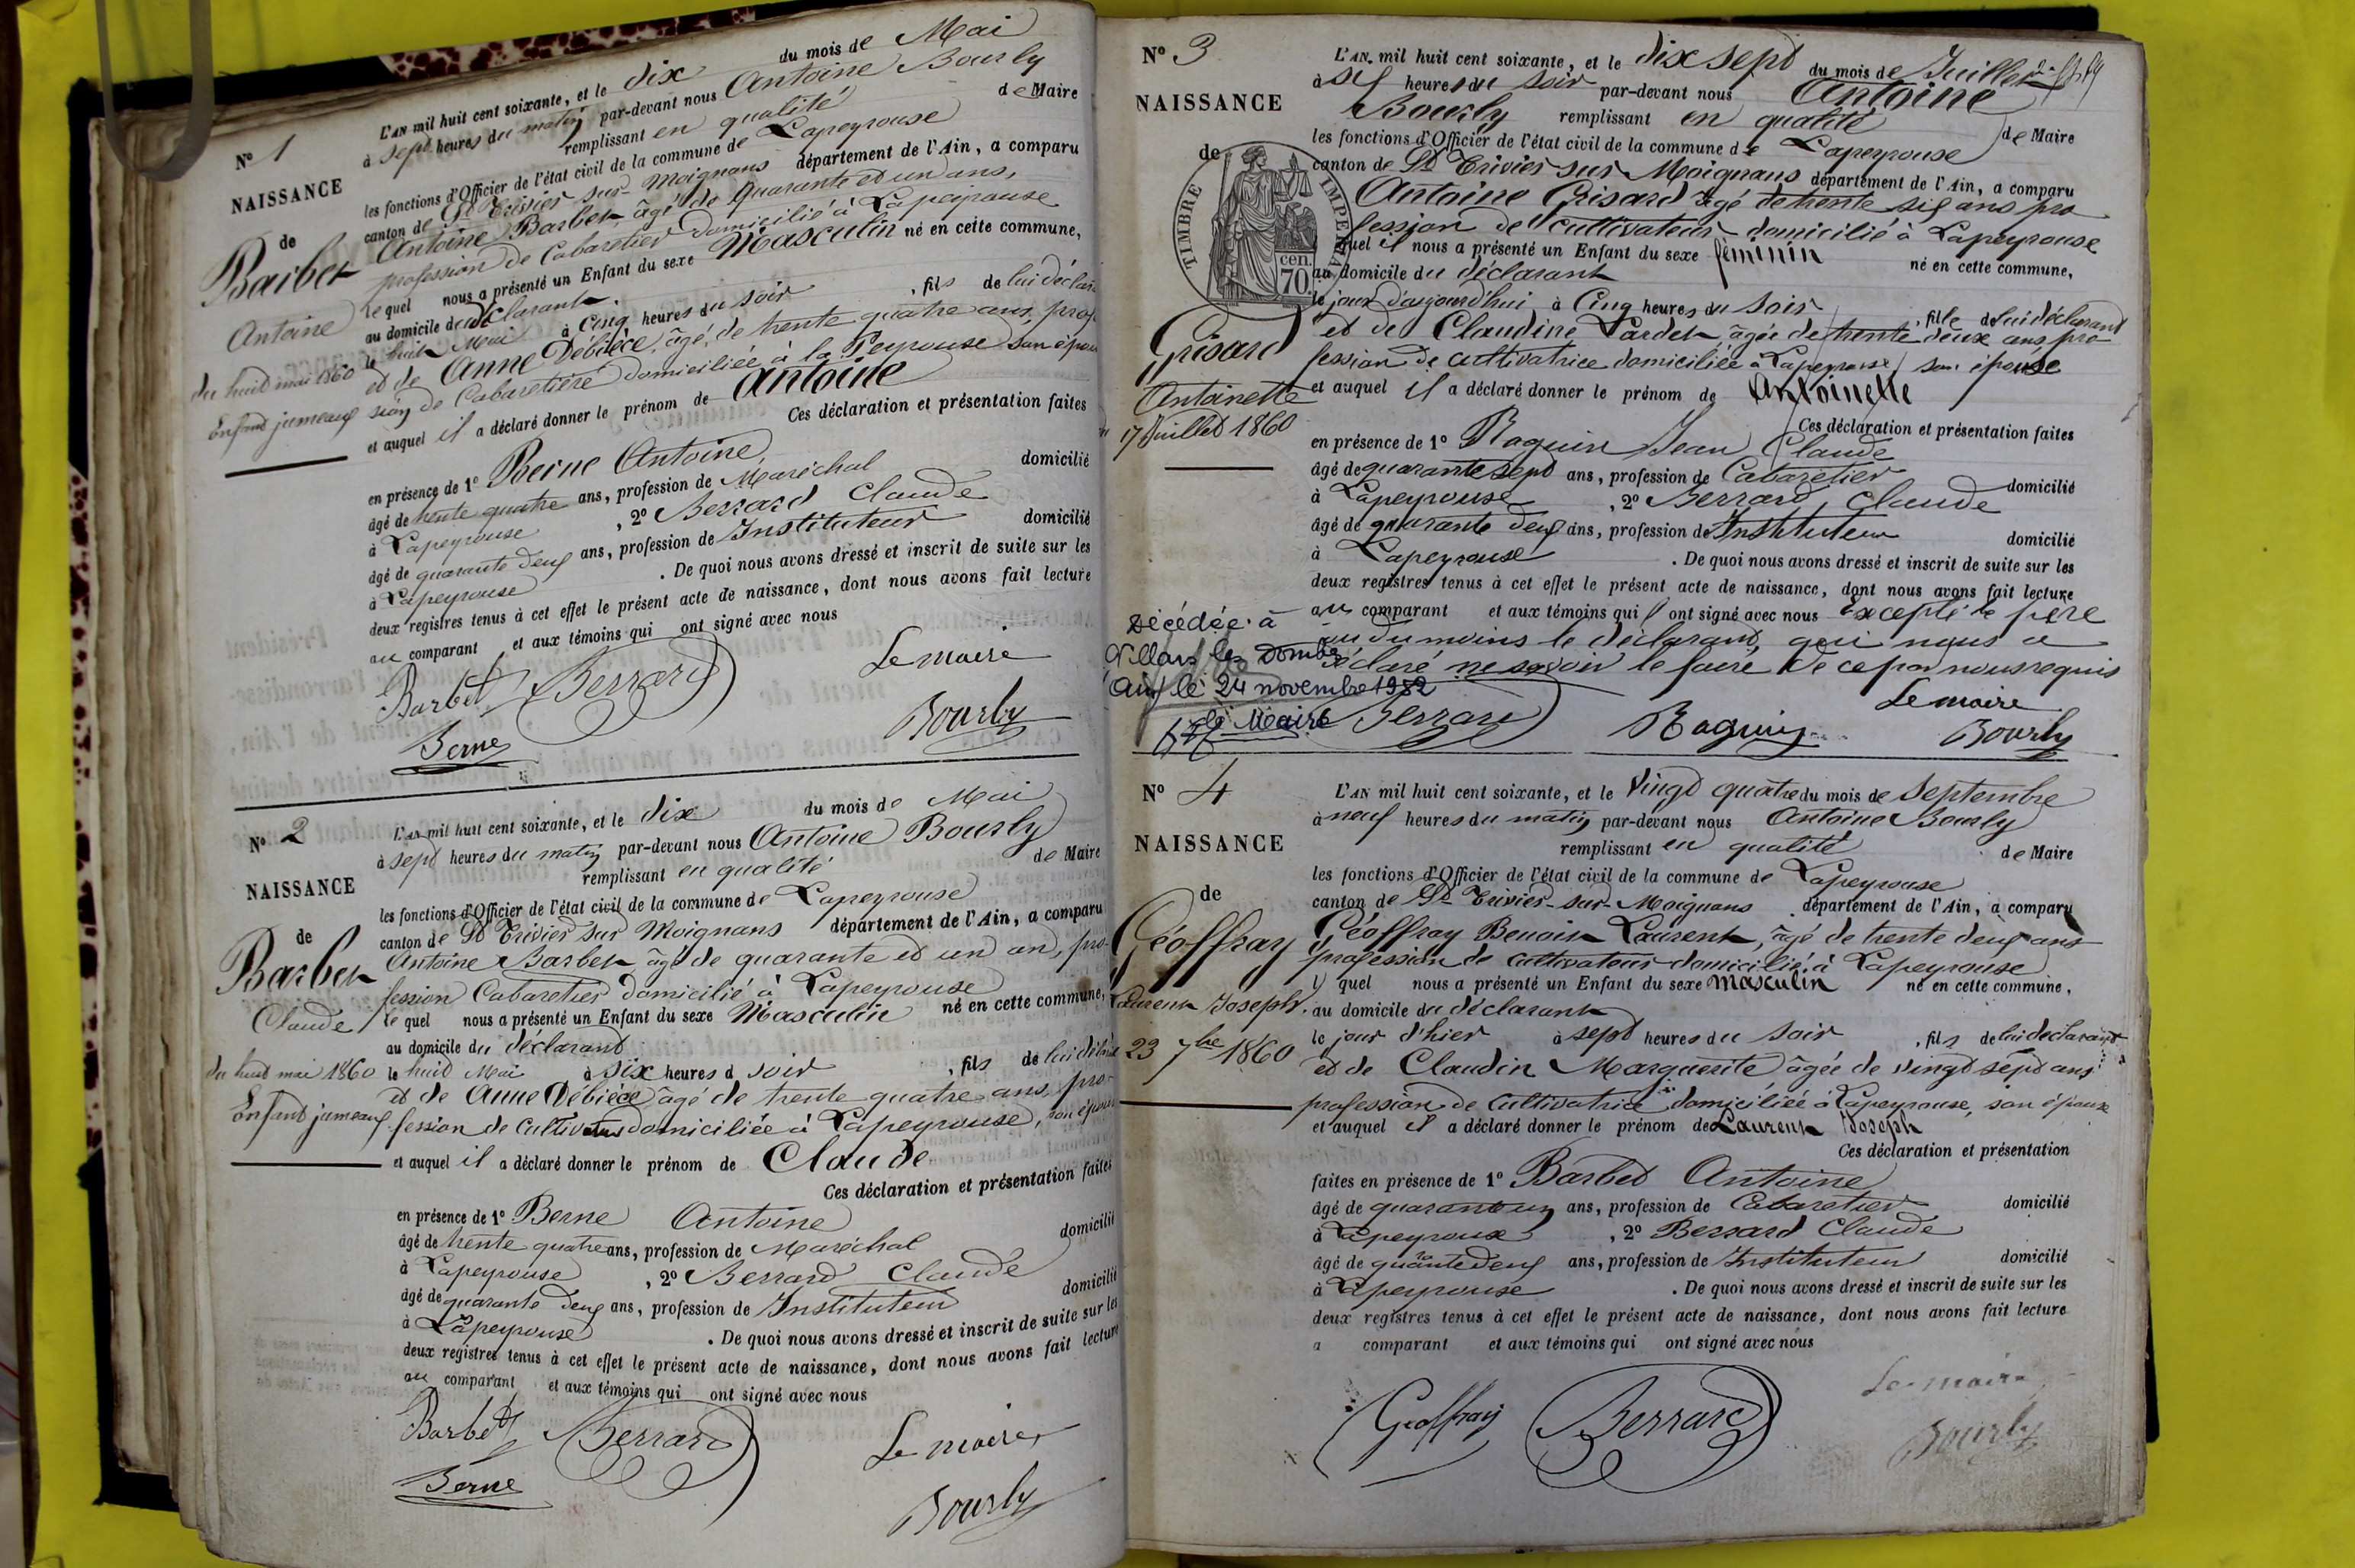 N° 1
NAISSANCE
de
Barbet
Antoine
du huit mai 1860
Enfant jumeaux
L'AN mil huit cent soixante, et le dix du mois de Mai
à sept heures du matin par-devant nous Antoine Bourly
remplissant en qualité de Maire
les fonctions d'Officier de l'état civil de la commune de Lapeyrouse
canton de St Trivier sur Moignans département de l'Ain, a comparu
Antoine Barbet, âgé de quarante et un ans,
profession de Cabaretier domicilié à Lapeyrouse
lequel nous a présenté un Enfant du sexe Masculin né en cette commune,
au domicile du déclarant
le huit Mai à Cinq heures du soir, fils de lui déclarant
et de Anne Débièce, âgé de trente quatre ans, profes
sion de Cabaretière domiciliée à la Peyrouse son épouse
et auquel il a déclaré donner le prénom de Antoine
Ces déclaration et présentation faites
en présence de 1° Berne Antoine
âgé de trente quatre ans, profession de Maréchal domicilié
à Lapeyrouse, 2° Berrard Claude
âgé de quarante deux ans, profession de Instituteur domicilié
à Lapeyrouse. De quoi nous avons dressé et inscrit de suite sur les
deux registres tenus à cet effet le présent acte de naissance, dont nous avons fait lecture
au comparant et aux témoins qui ont signé avec nous
Barbet Berrard Le maire
Berne Bourly
N° 2
NAISSANCE
de
Barbet
Claude
du huit mai 1860
Enfant jumeaux
L'AN mil huit cent soixante, et le dix du mois de Mai
à sept heures du matin par-devant nous Antoine Bourly
remplissant en qualité de Maire
les fonctions d'Officier de l'état civil de la commune de Lapeyrouse
canton de St Trivier sur Moignans département de l'Ain, a comparu
Antoine Barbet âgé de quarante et un an, pro
fession Cabaretier domicilié à Lapeyrouse
lequel nous a présenté un Enfant du sexe Masculin né en cette commune,
au domicile du déclarant
le huit Mai à six heures d soir, fils de lui déclarant
et de Anne Débièce âgé de trente quatre ans, pro
fession de Cultivateur domiciliée à Lapeyrouse, son épouse
et auquel il a déclaré donner le prénom de Claude
Ces déclaration et présentation faites
en présence de 1° Berne Antoine
âgé de trente quatre ans, profession de Maréchal domicilié
à Lapeyrouse, 2° Berrard Claude
âgé de quarante deux ans, profession de Instituteur domicilié
à Lapeyrouse. De quoi nous avons dressé et inscrit de suite sur les
deux registres tenus à cet effet le présent acte de naissance, dont nous avons fait lecture
au comparant et aux témoins qui ont signé avec nous
Barbet Berrard Le maire
Berne Bourly
N° 3
NAISSANCE
de
TIMBRE IMPERIAL
70 cen.
Grisard
Antoinette
17 Juillet 1860
L'AN mil huit cent soixante, et le dix sept du mois de Juillet
à six heures du soir par-devant nous Antoine
Bourly remplissant en qualité de Maire
les fonctions d'Officier de l'état civil de la commune de Lapeyrouse
canton de St Trivier sur Moignans département de l'Ain, a comparu
Antoine Grisard âgé de trente six ans pro
fession de Cultivateur domicilié à Lapeyrouse
lequel il nous a présenté un Enfant du sexe féminin né en cette commune,
au domicile du déclarant
le jour d'aujourd'hui à Cinq heures du soir, fille de lui déclarant
et de Claudine Pardet, âgée de trente deux ans pro
fession de cultivatrice domiciliée à Lapeyrouse, son épouse
et auquel il a déclaré donner le prénom de Antoinette
Ces déclaration et présentation faites
en présence de 1° Raguin Jean Claude
âgé de quarante sept ans, profession de Cabaretier domicilié
à Lapeyrouse, 2° Berrard Claude
âgé de quarante deux ans, profession de Instituteur domicilié
à Lapeyrouse. De quoi nous avons dressé et inscrit de suite sur les
deux registres tenus à cet effet le présent acte de naissance, dont nous avons fait lecture
au comparant et aux témoins qui ont signé avec nous Excepté le père
ou du moins le déclarant, qui nous a
déclaré ne savoir le faire de ce par nous requis
Décédée à
Villars les Dombes
Ain le 24 novembre 1952
le Maire
Berrard Raguin Le maire
Bourly
N° 4
NAISSANCE
de
Géoffray
Laurent Joseph
23 7bre 1860
L'AN mil huit cent soixante, et le Vingt quatre du mois de Septembre
à neuf heures du matin par-devant nous Antoine Bourly
remplissant en qualité de Maire
les fonctions d'Officier de l'état civil de la commune de Lapeyrouse
canton de St Trivier-sur-Moignans département de l'Ain, a comparu
Géoffray Benoit Laurent, âgé de trente deux ans
profession de Cultivateur domicilié à Lapeyrouse
lequel nous a présenté un Enfant du sexe masculin né en cette commune,
au domicile du déclarant
le jour d'hier à sept heures du soir, fils de lui déclarant
et de Claudin Marguerite âgée de vingt sept ans
profession de Cultivatrice domiciliée à Lapeyrouse, son épouse
et auquel il a déclaré donner le prénom de Laurent Joseph
Ces déclaration et présentation
faites en présence de 1° Barbet Antoine
âgé de quarante un ans, profession de Cabaretier domicilié
à Lapeyrouse, 2° Berrard Claude
âgé de quarante deux ans, profession de Instituteur domicilié
à Lapeyrouse. De quoi nous avons dressé et inscrit de suite sur les
deux registres tenus à cet effet le présent acte de naissance, dont nous avons fait lecture
a comparant et aux témoins qui ont signé avec nous
Geoffray Berrard Le maire
Bourly